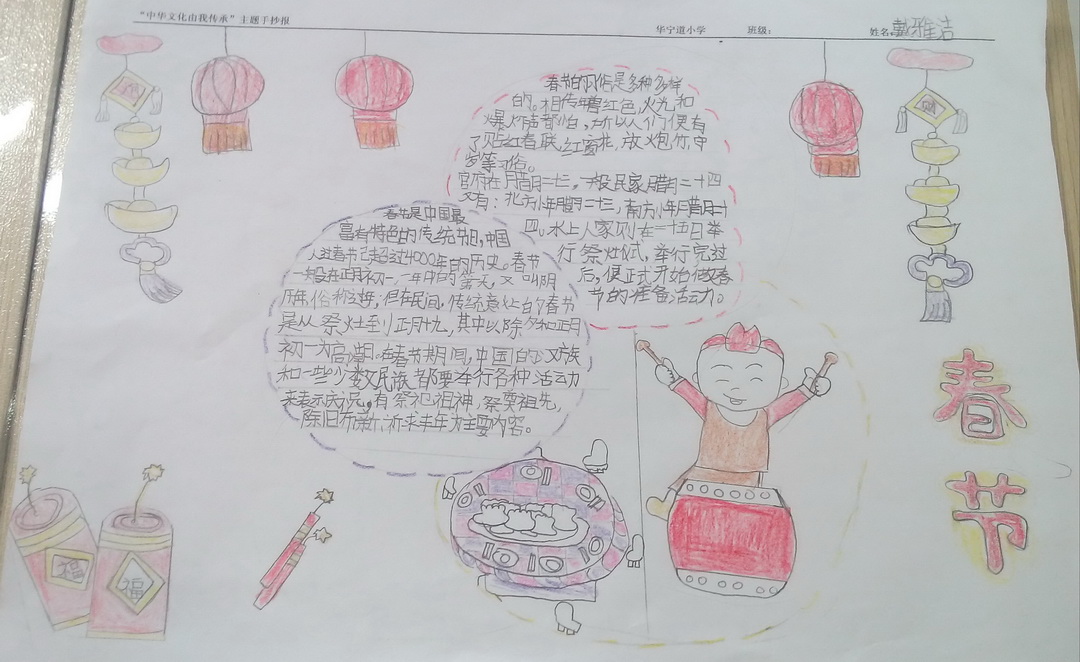 “中华文化由我传承”主题手抄报
华宁道小学 班级： 姓名：戴雅洁
财
财
春节的风俗是多种多样
的。相传年兽红色,火光和
爆炸声都怕，所以人们便有
了贴红春联,红窗花，放炮竹,守
岁等习俗。
官府在月腊月二三，一般民家腊月二十四
又有：北方小年腊月二三，南方小年腊月二十
四,水上人家则在二十五日举
行祭灶仪试，举行完过
后，便正式开始做迎春
节的准备活动。
春节是中国最
富有特色的传统节日,中国
人过春节已超过4000年的历史。春节
一般在正月初一,一年中的第一天,又叫阴
历年,俗称过年，但在民间，传统意处的春节
是从祭灶到正月十九，其中以除夕和正月
初一为高潮。在春节期间，中国的汉族
和一些少数民族都要举行各种活动
来表示庆祝。有祭祀祖神，祭奠祖先，
除旧布新、祈求丰年为主要内容。
春
节
福
福